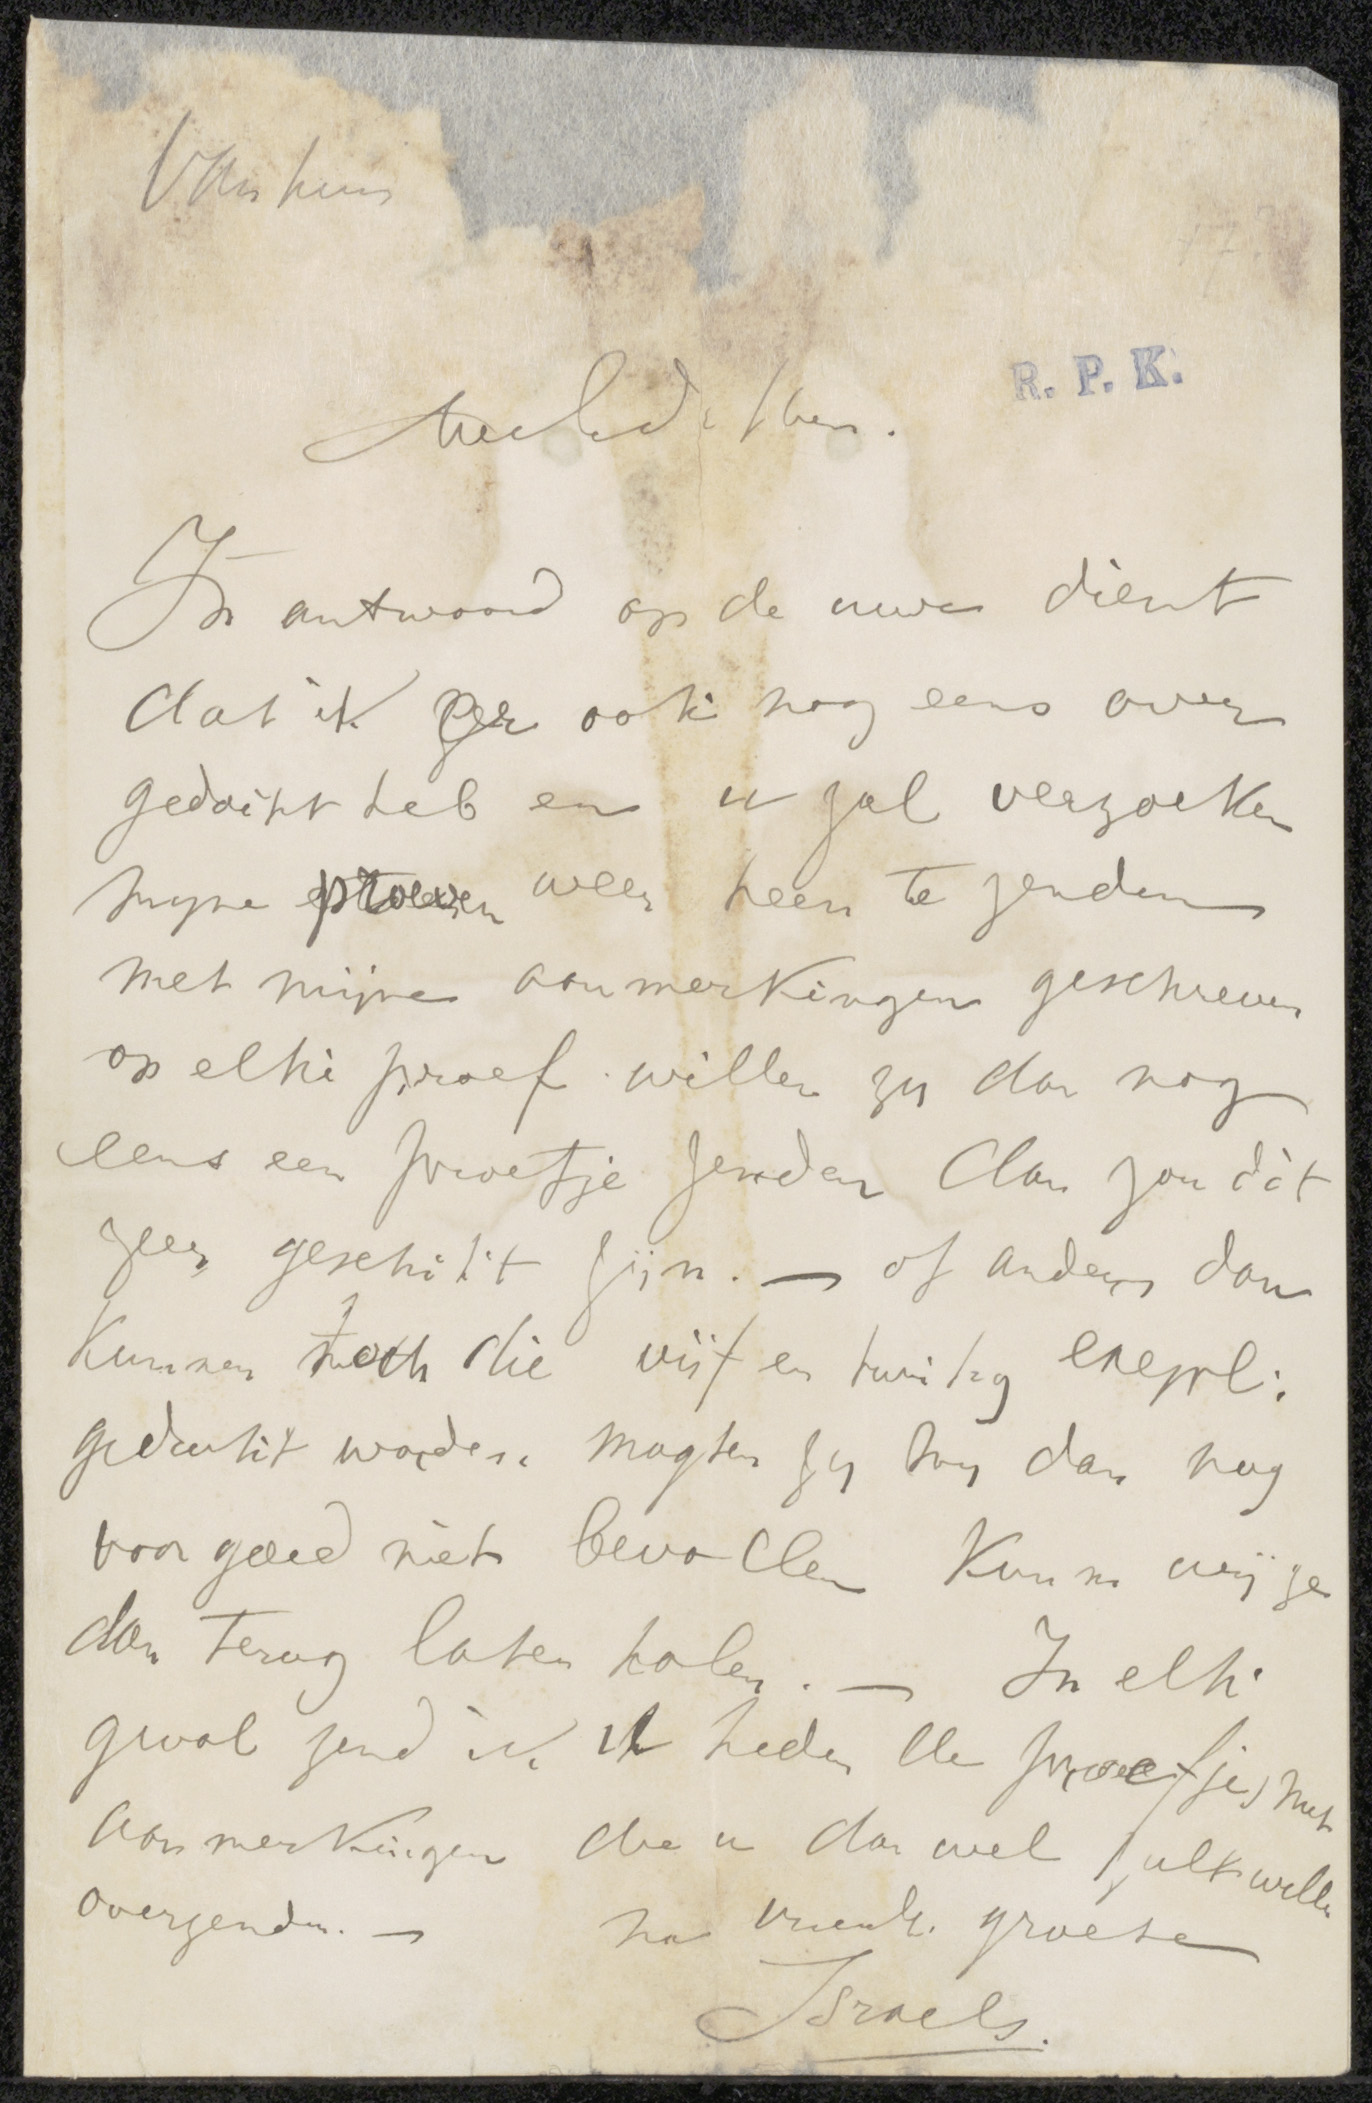 Van huis
R. P. K.
In antwoord op de uwe dient
dat ik er ook nog eens over
gedacht heb en u zal verzoeken
mijne proeven weer heen te zenden
met mijne aanmerkingen geschreven
op elke proef. willen zy dan nog
eens een proefje zenden dan zou dit
zeer geschikt zijn. — of anders dan
kunnen toch die vijf en twintig exempl:
gedrukt worden. mogten zy my dan nog
voor goed niet bevallen kunnen wij ze
dan terug laten halen. — In elk
geval zend ik u heden de proefjes met
aanmerkingen die u dan wel zult willen
overzenden. — na vriendl. groete
Israels.